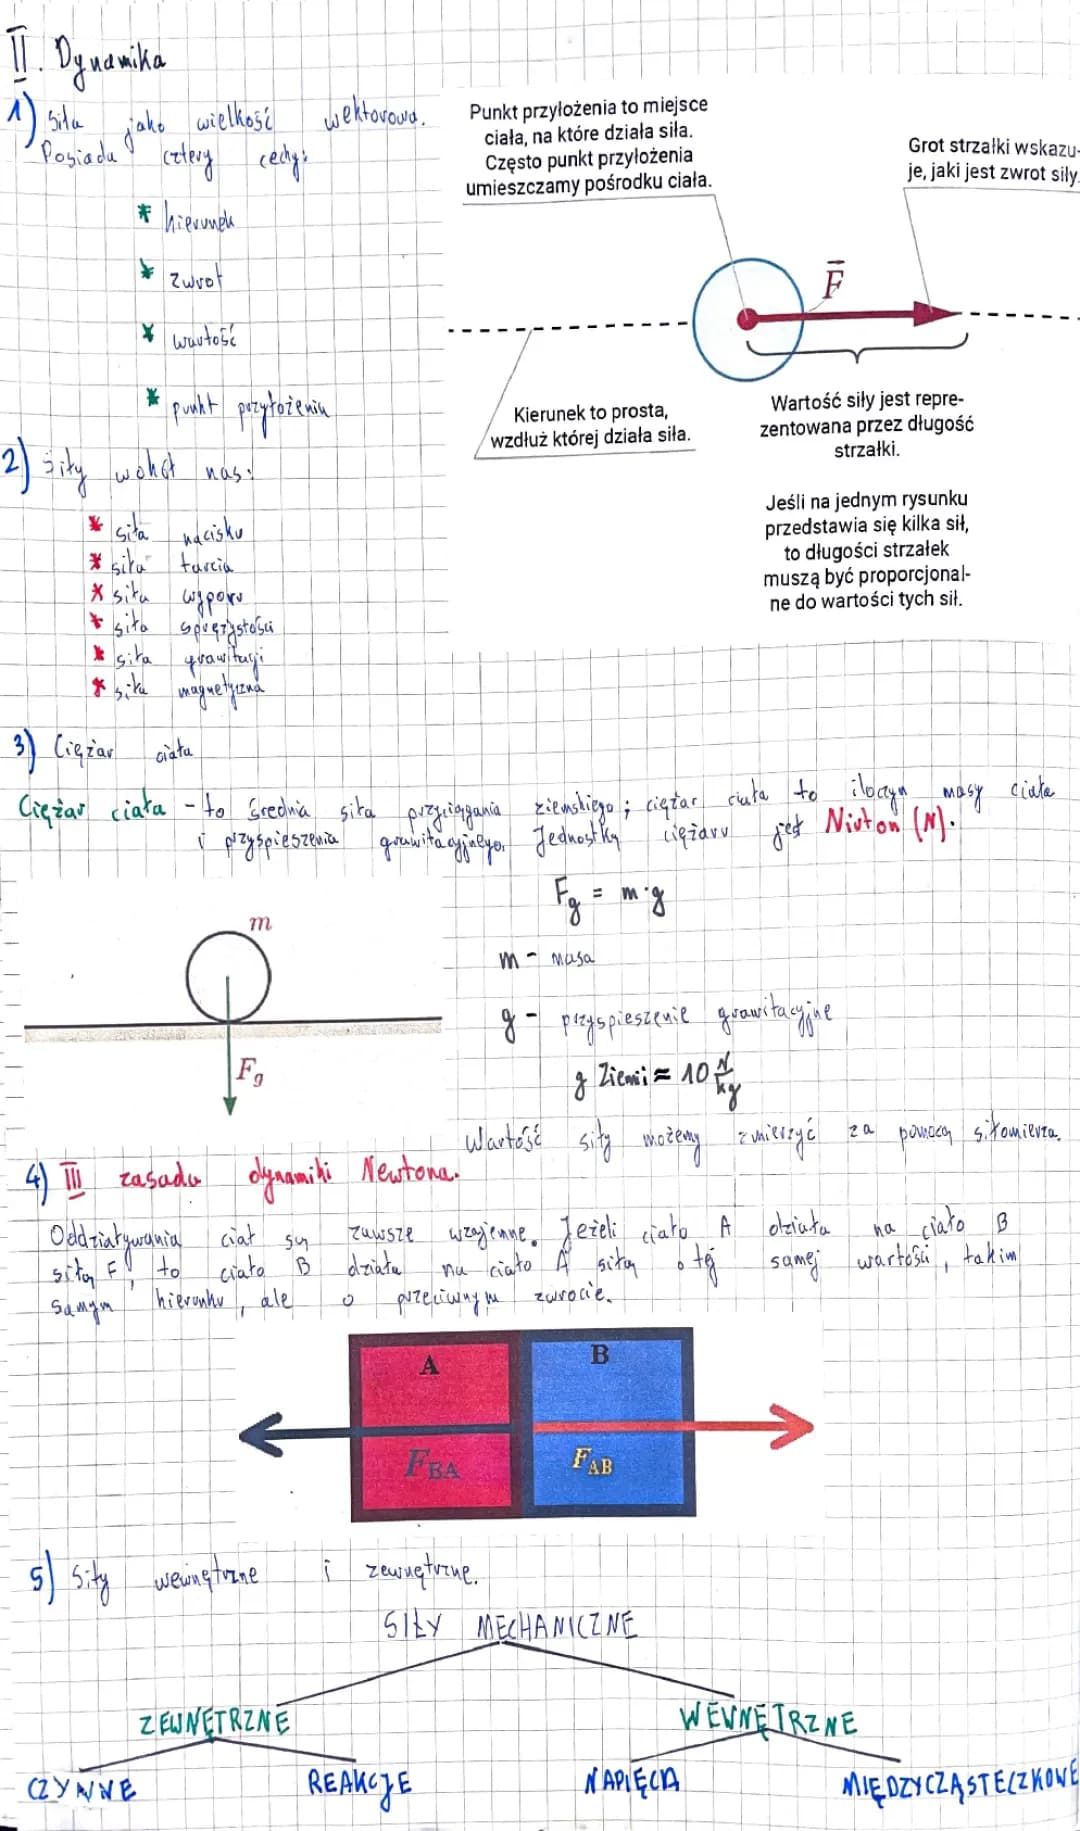 II. Dynamika
1) Siła jako wielkość wektorowa.
Posiada cztery cechy:
* kierunek
* zwrot
* wartość
* punkt przyłożenia
Punkt przyłożenia to miejsce
ciała, na które działa siła.
Często punkt przyłożenia
umieszczamy pośrodku ciała.
Grot strzałki wskazu-
je, jaki jest zwrot siły.
F
Kierunek to prosta,
wzdłuż której działa siła.
Wartość siły jest repre-
zentowana przez długość
strzałki.
Jeśli na jednym rysunku
przedstawia się kilka sił,
to długości strzałek
muszą być proporcjonal-
ne do wartości tych sił.
2) Siły wokół nas:
* siła nacisku
* siła tarcia
* siła wyporu
* siła sprężystości
* siła grawitacji
* siła magnetyczna
3) Ciężar ciała
Ciężar ciała - to średnia siła przyciągania ziemskiego; ciężar ciała to iloczyn masy ciała
i przyspieszenia grawitacyjnego. Jednostką ciężaru jest Niuton (N).
m
Fg
Fg = m·g
m - masa
g - przyspieszenie grawitacyjne
g Ziemi ≈ 10 N/kg
Wartość siły możemy zmierzyć za pomocą siłomierza.
4) III zasada dynamiki Newtona.
Oddziaływania ciał są zawsze wzajemne. Jeżeli ciało A działa na ciało B
siłą F, to ciało B działa na ciało A siłą o tej samej wartości, takim
samym kierunku, ale o przeciwnym zwrocie.
A B
FBA FAB
5) Siły wewnętrzne i zewnętrzne.
SIŁY MECHANICZNE
ZEWNĘTRZNE WEWNĘTRZNE
CZYNNE REAKCJE NAPIĘCIA MIĘDZYCZĄSTECZKOWE